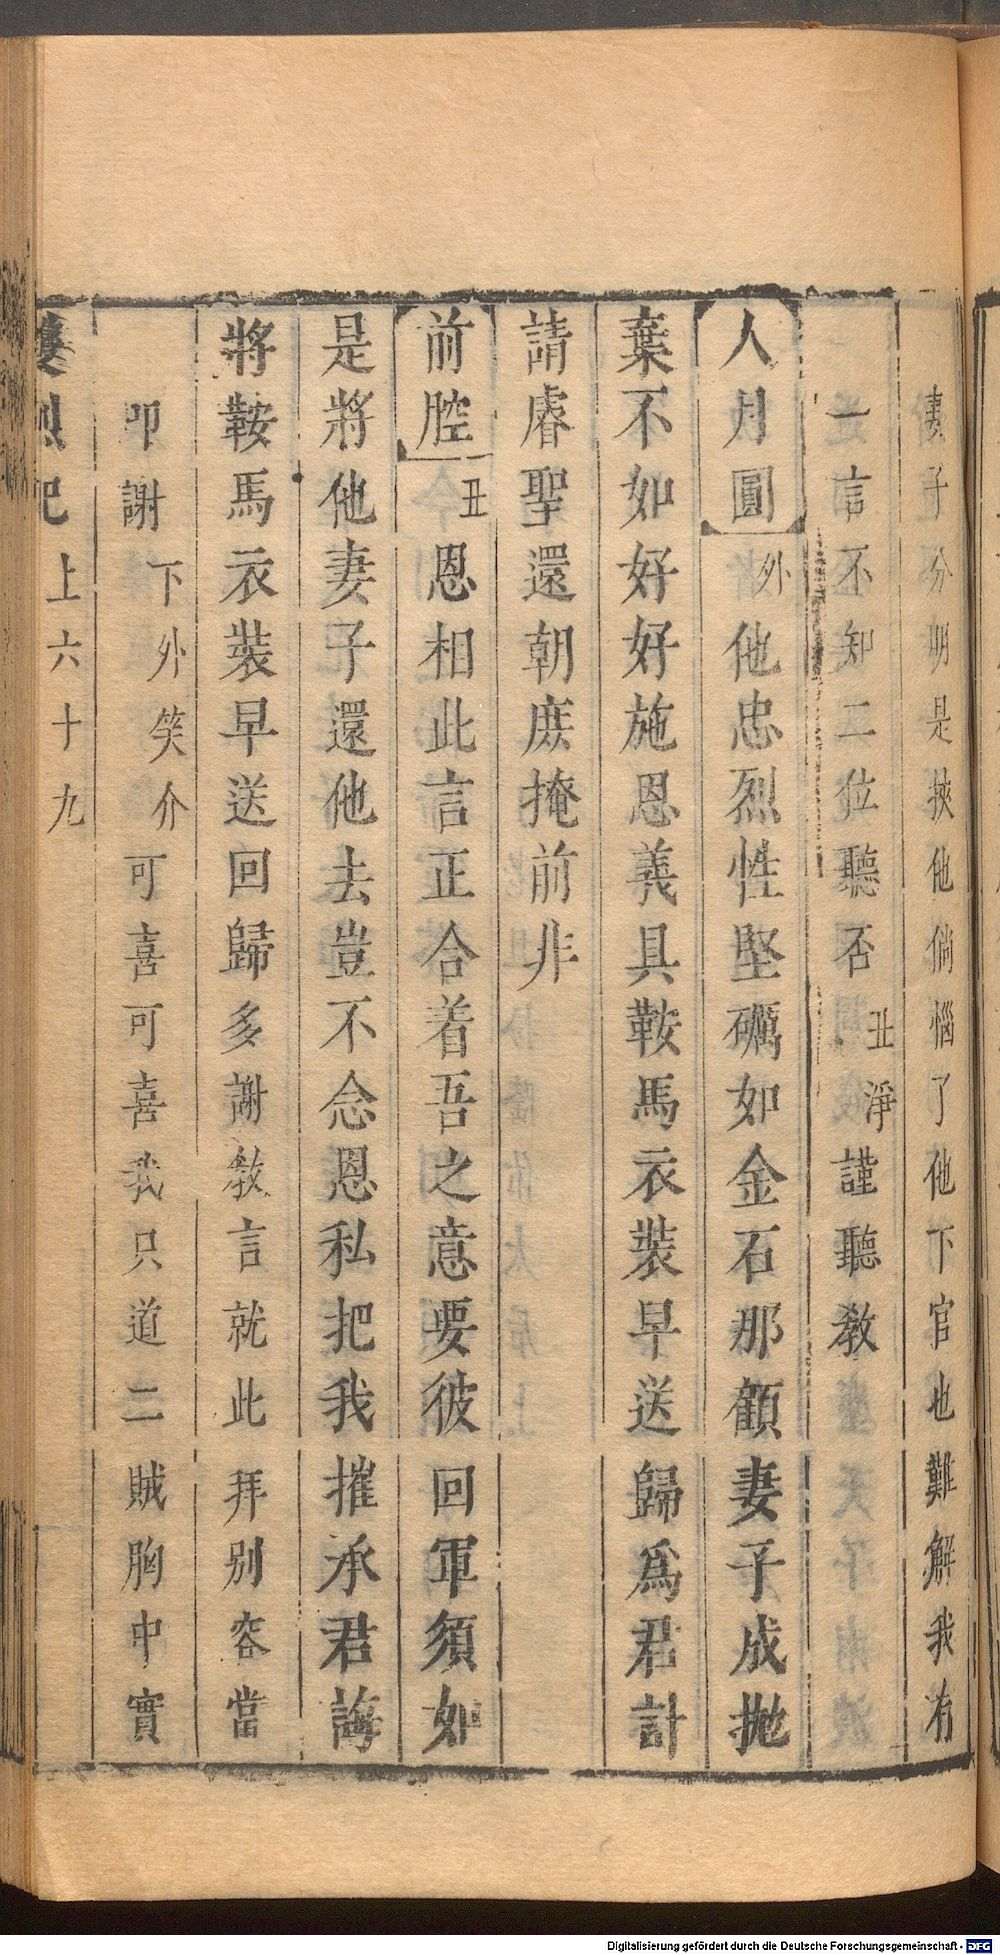 妻子分明是挾他倘惱了他下官也難解我有
一言不知二位聽否丑淨謹聽敎
人月圓外他忠烈性堅礪如金石那顧妻子成拋
棄不如好好施恩義具鞍馬衣裝早送歸爲君計
請睿聖還朝庶掩前非
前腔丑恩相此言正合着吾之意要彼回軍須如
是將他妻子還他去豈不念恩私把我摧承君誨
將鞍馬衣裝早送回歸多謝敎言就此拜别容當
叩謝下外笑介可喜可喜我只道二賊胸中實
雙烈記上六十九
Digitalisierung gefördert durch die Deutsche Forschungsgemeinschaft - DFG